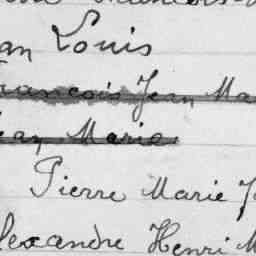 an Louis
rancois Jean Ma
ean Marie
Pierre Marie J
lexandre Henri M